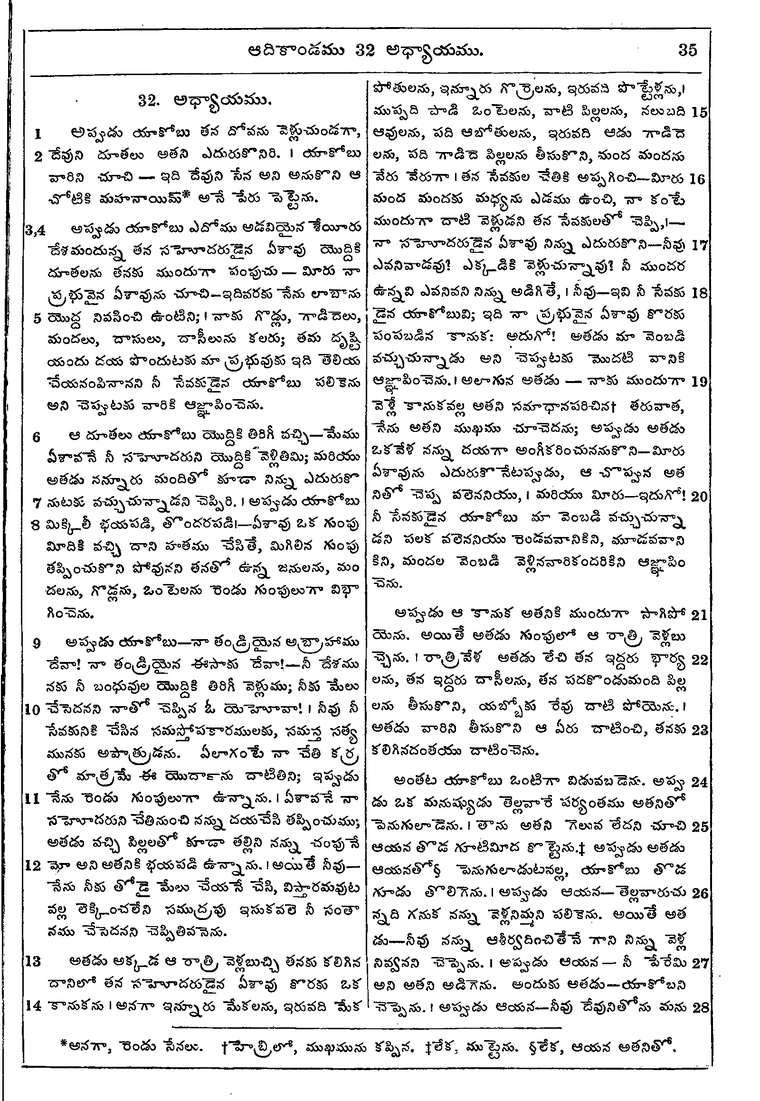 ఆదికాండము 32 అధ్యాయము. 35
32. అధ్యాయము.
1 అప్పుడు యాకోబు తన దోవను వెళ్లుచుండగా,
2 దేవుని దూతలు అతని ఎదురుకొనిరి. । యాకోబు
వారిని చూచి — ఇది దేవుని సేన అని అనుకొని ఆ
చోటికి మహనాయిమ్* అనే పేరు పెట్టెను.
3,4 అప్పుడు యాకోబు ఎదోము అడవియైన శేయీరు
దేశమందున్న తన సహోదరుడైన ఏశావు యొద్దికి
దూతలను తనకు ముందుగా పంపుచు — మీరు నా
ప్రభువైన ఏశావును చూచి—ఇదివరకు నేను లాబాను
5 యొద్ద నివసించి ఉంటిని; । నాకు గొడ్లు, గాడిదెలు,
మందలు, దాసులు, దాసీలును కలరు; తమ దృష్టి
యందు దయ పొందుటకు మా ప్రభువుకు ఇది తెలియ
చేయనంపినానని నీ సేవకుడైన యాకోబు పలికెను
అని చెప్పుటకు వారికి ఆజ్ఞాపించెను.
6 ఆ దూతలు యాకోబు యొద్దికి తిరిగీ వచ్చి—మేము
ఏశావనే నీ సహోదరుని యొద్దికి వెళ్లితిమి; మరియు
అతడు నన్నూరు మందితో కూడా నిన్ను ఎదురుకొ
7 నుటకు వచ్చుచున్నాడని చెప్పిరి. । అప్పుడు యాకోబు
8 మిక్కిలీ భయపడి, తొందరపడి।—ఏశావు ఒక గుంపు
మీదికి వచ్చి దాని హతము చేసితే, మిగిలిన గుంపు
తప్పించుకొని పోవునని తనతో ఉన్న జనులను, మం
దలను, గొడ్లను, ఒంటెలను రెండు గుంపులుగా విభా
గించెను.
9 అప్పుడు యాకోబు—నా తండ్రియైన అబ్రాహాము
దేవా! నా తండ్రియైన ఈసాకు దేవా!—నీ దేశము
నకు నీ బంధువుల యొద్దికి తిరిగీ వెళ్లుము; నీకు మేలు
10 చేసెదనని నాతో చెప్పిన ఓ యెహోవా! । నీవు నీ
సేవకునికి చేసిన సమస్తోపకారములకు, సమస్త సత్య
మునకు అపాత్రుడను. ఏలాగంటే నా చేతి కర్ర
తో మాత్రమే ఈ యొర్దానును దాటితిని; ఇప్పుడు
11 నేను రెండు గుంపులుగా ఉన్నాను. । ఏశావనే నా
సహోదరుని చేతినుంచి నన్ను దయచేసి తప్పించుము;
అతడు వచ్చి పిల్లలతో కూడా తల్లిని నన్ను చంపునే
12 మో అని అతనికి భయపడి ఉన్నాను. । అయితే నీవు—
నేను నీకు తోడై మేలు చేయనే చేసి, విస్తారమవుట
వల్ల లెక్కించలేని సముద్రపు ఇసుకవలె నీ సంతా
నము చేసెదనని చెప్పితివనెను.
13 అతడు అక్కడ ఆ రాత్రి వెళ్లబుచ్చి తనకు కలిగిన
దానిలో తన సహోదరుడైన ఏశావు కొరకు ఒక
14 కానుకను । అనగా ఇన్నూరు మేకలను, ఇరువది మేక
పోతులను, ఇన్నూరు గొర్రెలను, ఇరువది పొట్టేళ్లను, ।
ముప్పది పాడి ఒంటెలను, వాటి పిల్లలను, నలుబది 15
ఆవులను, పది ఆబోతులను, ఇరువది ఆడు గాడిదె
లను, పది గాడిదె పిల్లలను తీసుకొని, మంద మందను
వేరు వేరుగా । తన సేవకుల చేతికి అప్పగించి—మీరు 16
మంద మందకు మధ్యను ఎడము ఉంచి, నా కంటే
ముందుగా దాటి వెళ్లుడని తన సేవకులతో చెప్పి, ।—
నా సహోదరుడైన ఏశావు నిన్ను ఎదురుకొని—నీవు 17
ఎవనివాడవు? ఎక్కడికి వెళ్లుచున్నావు? నీ ముందర
ఉన్నవి ఎవనివని నిన్ను అడిగితే, । నీవు—ఇవి నీ సేవకు 18
డైన యాకోబువి; ఇది నా ప్రభువైన ఏశావు కొరకు
పంపబడిన కానుక: అదుగో! అతడు మా వెంబడి
వచ్చుచున్నాడు అని చెప్పుటకు మొదటి వానికి
ఆజ్ఞాపించెను. । అలాగున అతడు — నాకు ముందుగా 19
వెళ్లే కానుకవల్ల అతని సమాధానపరచిన† తరువాత,
నేను అతని ముఖము చూచెదను; అప్పుడు అతడు
ఒకవేళ నన్ను దయగా అంగీకరించుననుకొని—మీరు
ఏశావును ఎదురుకొనేటప్పుడు, ఆ చొప్పున అత
నితో చెప్ప వలెననియు, । మరియు మీరు—ఇదుగో! 20
నీ సేవకుడైన యాకోబు మా వెంబడి వచ్చుచున్నా
డని పలక వలెననియు రెండవవానికిని, మూడవవాని
కిని, మందల వెంబడి వెళ్లినవారికందరికిని ఆజ్ఞాపిం
చెను.
అప్పుడు ఆ కానుక అతనికి ముందుగా సాగిపో 21
యెను. అయితే అతడు గుంపులో ఆ రాత్రి వెళ్లబు
చ్చెను. । రాత్రివేళ అతడు లేచి తన ఇద్దరు భార్య 22
లను, తన ఇద్దరు దాసీలను, తన పదకొండుమంది పిల్ల
లను తీసుకొని, యబ్బోకు రేవు దాటి పోయెను. ।
అతడు వారిని తీసుకొని ఆ ఏరు దాటించి, తనకు 23
కలిగినదంతయు దాటించెను.
అంతట యాకోబు ఒంటిగా విడువబడెను. అప్పు 24
డు ఒక మనుష్యుడు తెల్లవారే పర్యంతము అతనితో
పెనుగులాడెను. । తాను అతని గెలువ లేదని చూచి 25
ఆయన తొడ గూటిమీద కొట్టెను.‡ అప్పుడు అతడు
ఆయనతో§ పెనుగులాడుటవల్ల, యాకోబు తొడ
గూడు తొలిగెను. । అప్పుడు ఆయన— తెల్లవారుచు 26
న్నది గనుక నన్ను వెళ్లనిమ్మని పలికెను. అయితే అత
డు—నీవు నన్ను ఆశీర్వదించితేనే గాని నిన్ను వెళ్ల
నివ్వనని చెప్పెను. । అప్పుడు ఆయన — నీ పేరేమి 27
అని అతని అడిగెను. అందుకు అతడు—యాకోబని
చెప్పెను. । అప్పుడు ఆయన—నీవు దేవునితోను మను 28
*అనగా, రెండు సేనలు. †హెబ్రిలో, ముఖమును కప్పిన. ‡లేక, ముట్టెను. §లేక, ఆయన అతనితో.